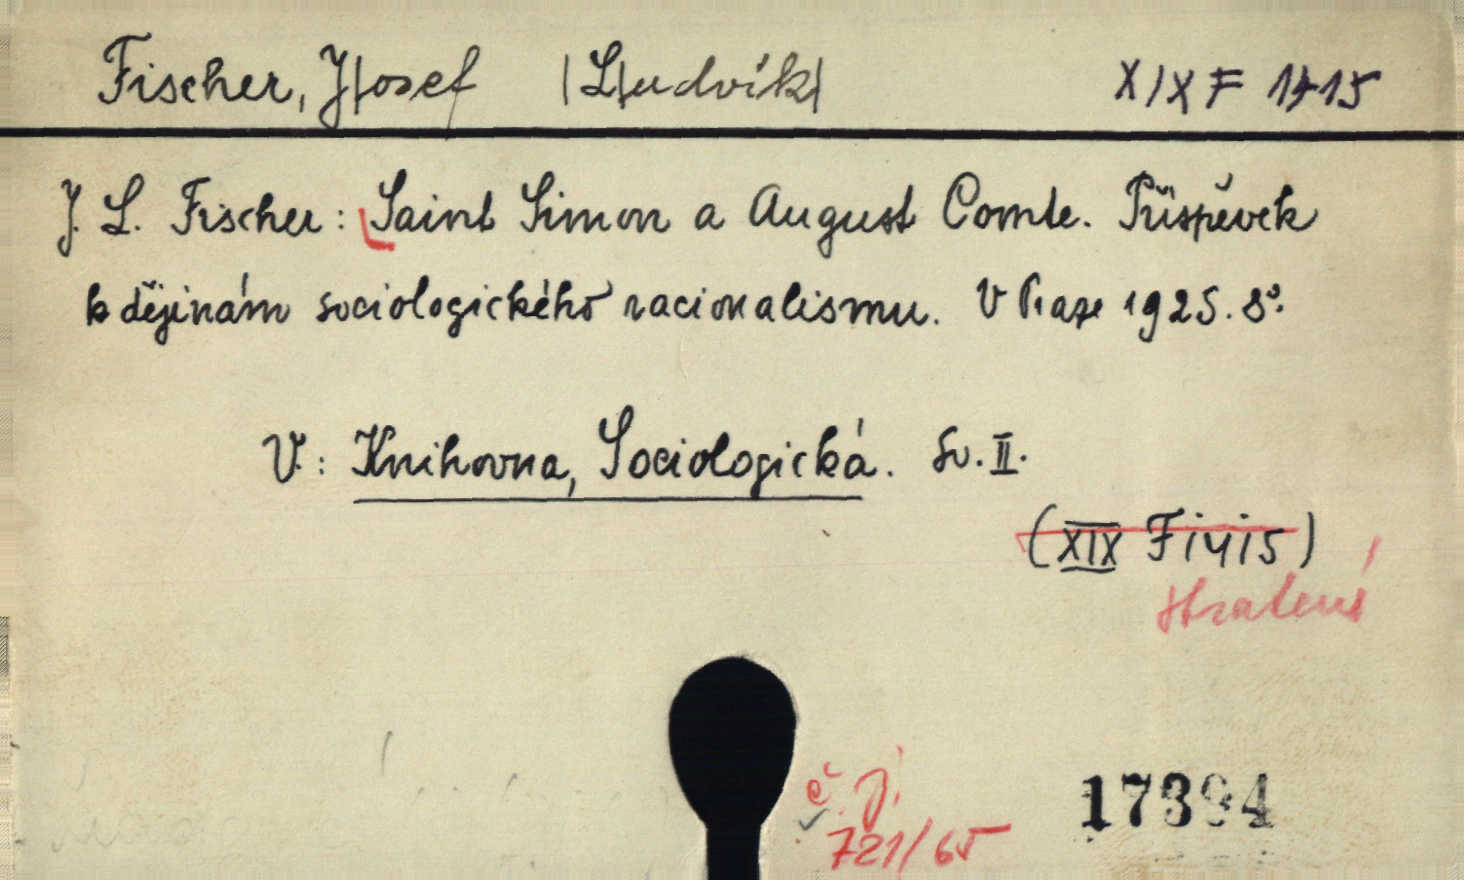 Fischer, J|osef |L|udvík| XIX F 1415
J. L. Fischer: Saint Simon a August Comte. Příspěvek
k dějinám sociologického racionalismu. V Praze 1925. 8°.
V: Knihovna, Sociologická. Sv. II.
(XIX F 1415)
č. j.
721/65
17394